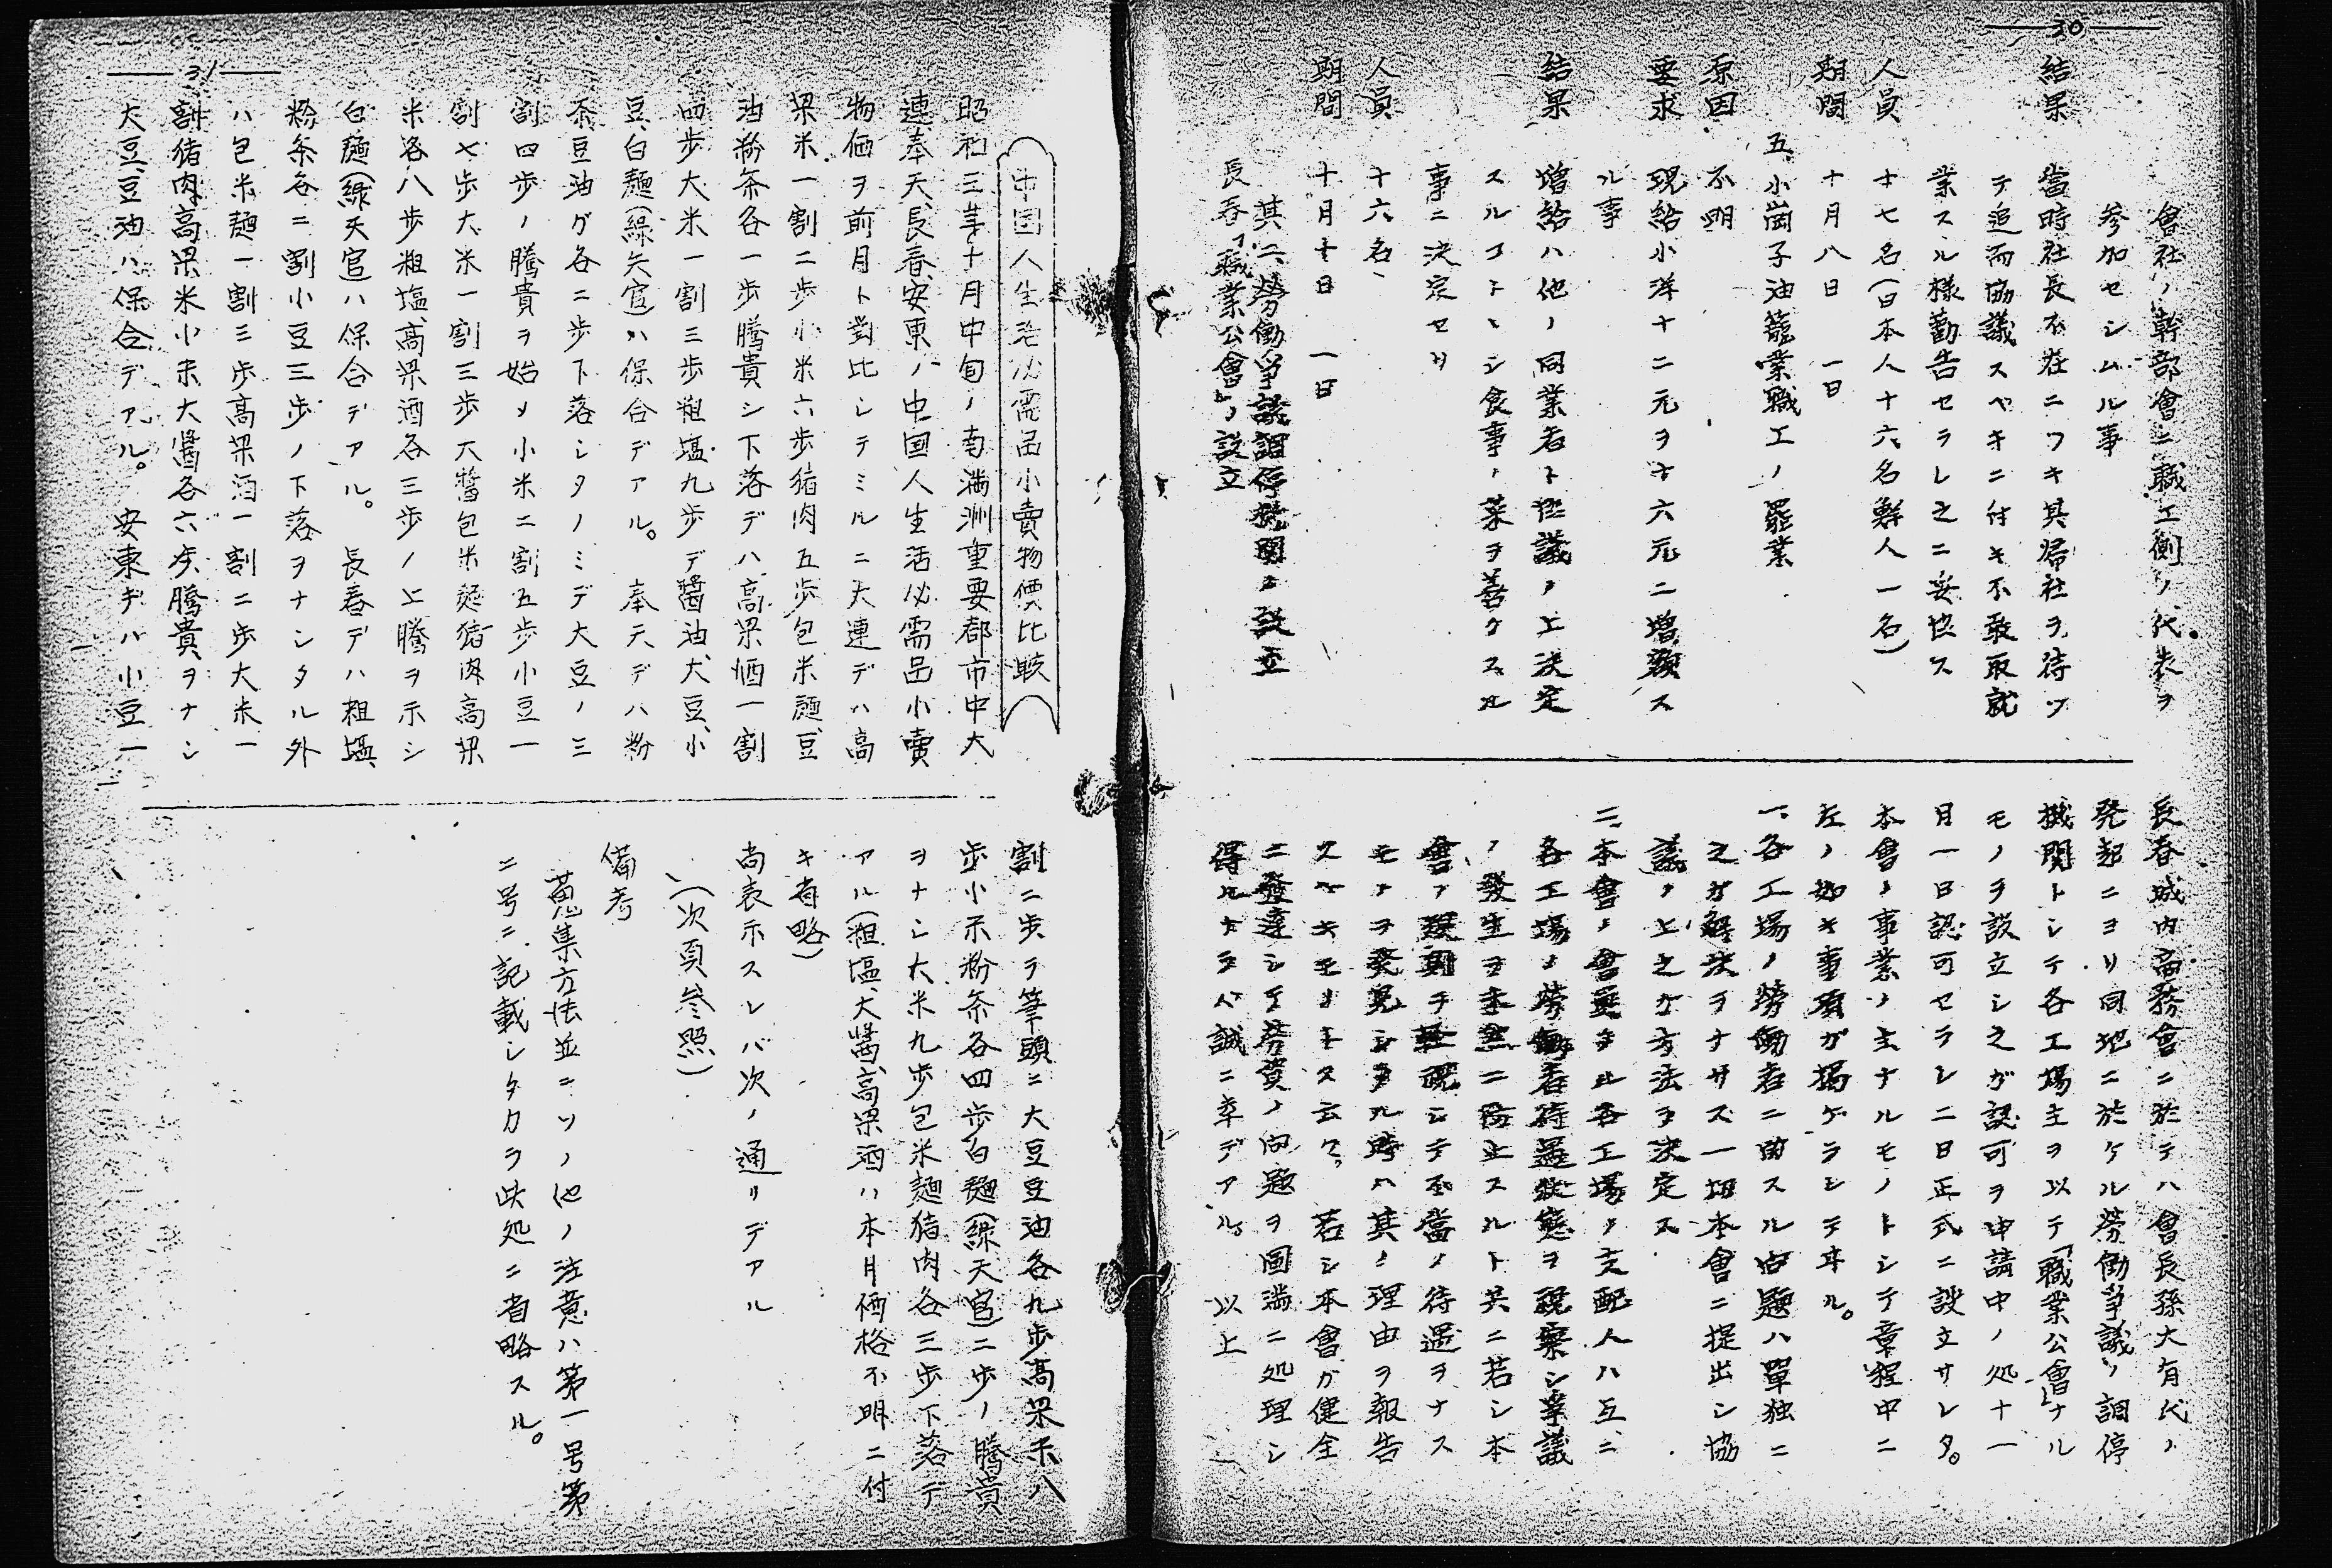 30
會社ノ幹部會ニ職工側ノ代表ヲ
参加セシムル事
結果 當時社長不在ニツキ其帰社ヲ待ツ
テ追而協議スベキニ付キ不敢取就
業スル様勸告セラレ之ニ妥協ス
人員 十七名(日本人十六名鮮人一名)
期間 十月八日 一日
五、小崗子油籠業職工ノ罷業
原因 不明
要求 現給小洋十二元ヲ十六元ニ増額ス
ル事
結果 増給ハ他ノ同業者ト協議ノ上決定
スルコトヽシ食事ノ菜ヲ善クスル
事ニ決定セリ
人員 十六名
期間 十月十日 一日
其二、勞働爭議調停機関ノ設立
長春「職業公會」ノ設立
長春城内商務會ニ於テハ會長孫大有氏ノ
発起ニヨリ同地ニ於ケル勞働爭議ノ調停
機関トシテ各工場主ヲ以テ「職業公會」ナル
モノヲ設立シ之ガ認可ヲ申請中ノ処十一
月一日認可セラレ二日正式ニ設立サレタ。
本會ノ事業ノ主ナルモノトシテ章程中ニ
左ノ如キ事項ガ掲ゲラレテ居ル。
一、各工場ノ勞働者ニ関スル問題ハ單独ニ
之ガ解決ヲナサズ一切本會ニ提出シ協
議ノ上之ガ方法ヲ決定ス
二、本會ノ會員タル各工場ノ支配人ハ互ニ
各工場ノ勞働者待遇状態ヲ視察シ爭議
ノ發生ヲ未然ニ防止スルト共ニ若シ本
會ノ規則ヲ軽視シテ不當ノ待遇ヲナス
モノヲ発見シタル時ハ其ノ理由ヲ報告
スベキモノトス云々、 若シ本會ガ健全
ニ發達シテ勞資ノ問題ヲ圓満ニ処理シ
得ルナラバ誠ニ幸デアル。 以上
31
中国人生活必需品小賣物價比較
昭和三年十月中旬ノ南満洲重要都市中大
連、奉天、長春、安東ノ中国人生活必需品小賣
物価ヲ前月ト對比シテミルニ大連デハ高
粱米一割二歩小米六歩猪肉五歩包米麺、豆
油粉条各一歩騰貴シ下落デハ高粱酒一割
四歩大米一割三歩粗塩九歩デ醤油、大豆、小
豆、白麺(緑天官)ハ保合デアル。 奉天デハ粉
条豆油ガ各二歩下落シタノミデ大豆ノ三
割四歩ノ騰貴ヲ始メ小米二割五歩小豆一
割七歩大米一割三歩大醤包米麺猪肉高粱
米各八歩粗塩、高粱酒各三歩ノ上騰ヲ示シ
白麺(緑天官)ハ保合デアル。 長春デハ粗塩
粉条各二割小豆三歩ノ下落ヲナシタル外
ハ包米麺一割三歩高粱酒一割二歩大米一
割、猪肉高粱米小米大醤各六歩騰貴ヲナシ
大豆、豆油ハ保合デアル。 安東デハ小豆一
割二歩ヲ筆頭ニ大豆豆油各九歩高粱米八
歩小米粉条各四歩白麺(緑天官)二歩ノ騰貴
ヲナシ大米九歩包米麺猪肉各三歩下落デ
アル(粗塩、大醤、高粱酒ハ本月価格不明ニ付
キ省略)
尚表示スレバ次ノ通リデアル
(次頁参照)
備考
蒐集方法並ニソノ他ノ注意ハ第一号第
二号ニ記載シタカラ此処ニ省略スル。